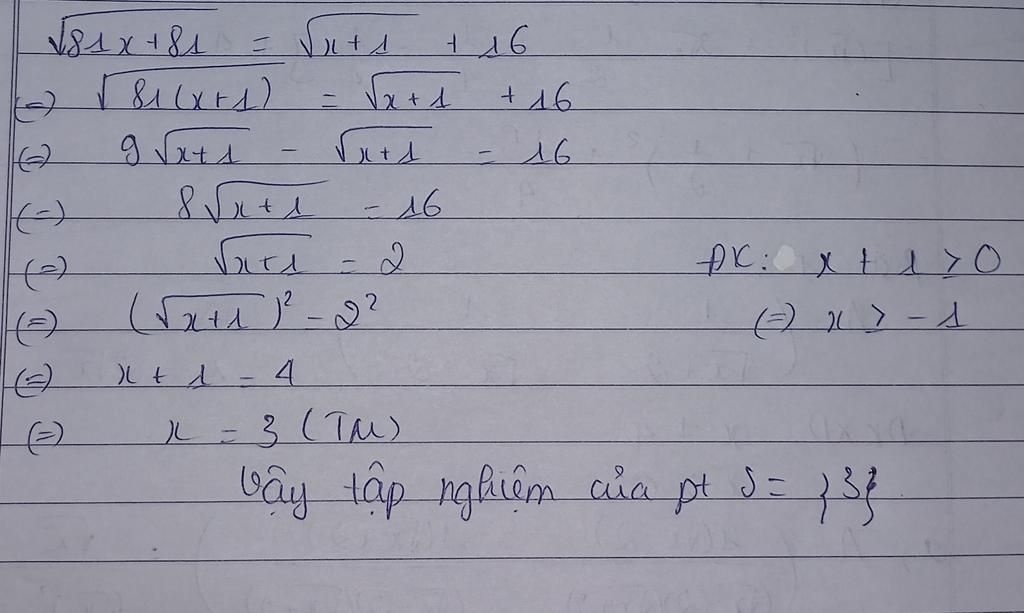 √81x+81 = √x+1 + 16
(=) √81(x+1) = √x+1 + 16
(=) 9√x+1 - √x+1 = 16
(=) 8√x+1 = 16
(=) √x+1 = 2 ĐK: x + 1 ≥ 0
(=) (√x+1)² = 2² (=) x ≥ -1
(=) x + 1 = 4
(=) x = 3 (TM)
Vậy tập nghiệm của pt S = {3}